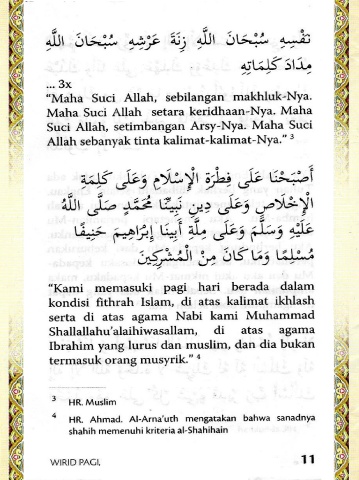 نَفْسِهِ سُبْحَانَ اللَّهِ زِنَةَ عَرْشِهِ سُبْحَانَ اللَّهِ
مِدَادَ كَلِمَاتِهِ
... 3x
“Maha Suci Allah, sebilangan makhluk-Nya.
Maha Suci Allah setara keridhaan-Nya. Maha
Suci Allah, setimbangan Arsy-Nya. Maha Suci
Allah sebanyak tinta kalimat-kalimat-Nya.” 3
أَصْبَحْنَا عَلَى فِطْرَةِ الْإِسْلَامِ وَعَلَى كَلِمَةِ
الْإِخْلَاصِ وَعَلَى دِينِ نَبِيِّنَا مُحَمَّدٍ صَلَّى اللَّهُ
عَلَيْهِ وَسَلَّمَ وَعَلَى مِلَّةِ أَبِينَا إِبْرَاهِيمَ حَنِيفًا
مُسْلِمًا وَمَا كَانَ مِنْ الْمُشْرِكِينَ
“Kami memasuki pagi hari berada dalam
kondisi fithrah Islam, di atas kalimat ikhlash
serta di atas agama Nabi kami Muhammad
Shallallahu’alaihiwasallam, di atas agama
Ibrahim yang lurus dan muslim, dan dia bukan
termasuk orang musyrik.” 4
3 HR. Muslim
4 HR. Ahmad. Al-Arna’uth mengatakan bahwa sanadnya
shahih memenuhi kriteria al-Shahihain
WIRID PAGI, 11